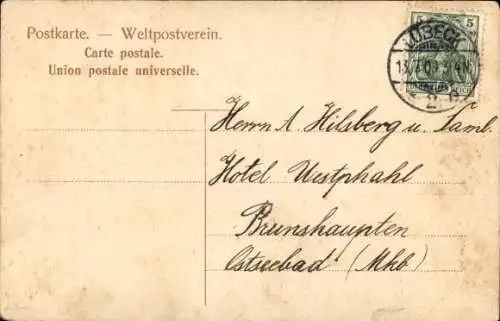 Postkarte. — Weltpostverein.
Carte postale.
Union postale universelle.
5 5
LÜBECK
Herrn A. Hilsberg u. Faml.
Hotel Westphahl
Brunshaupten
Ostseebad (Mkb)